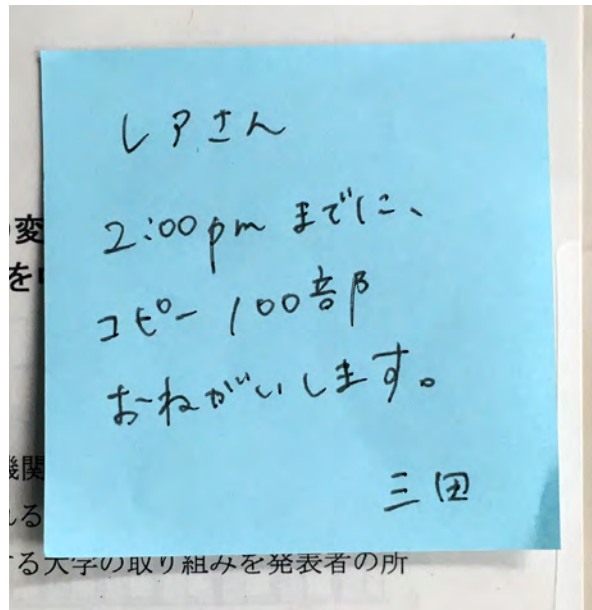 レアさん
2:00pm までに、
コピー 100部
おねがいします。
三田
変
を
機関
いる
する大学の取り組みを発表者の所